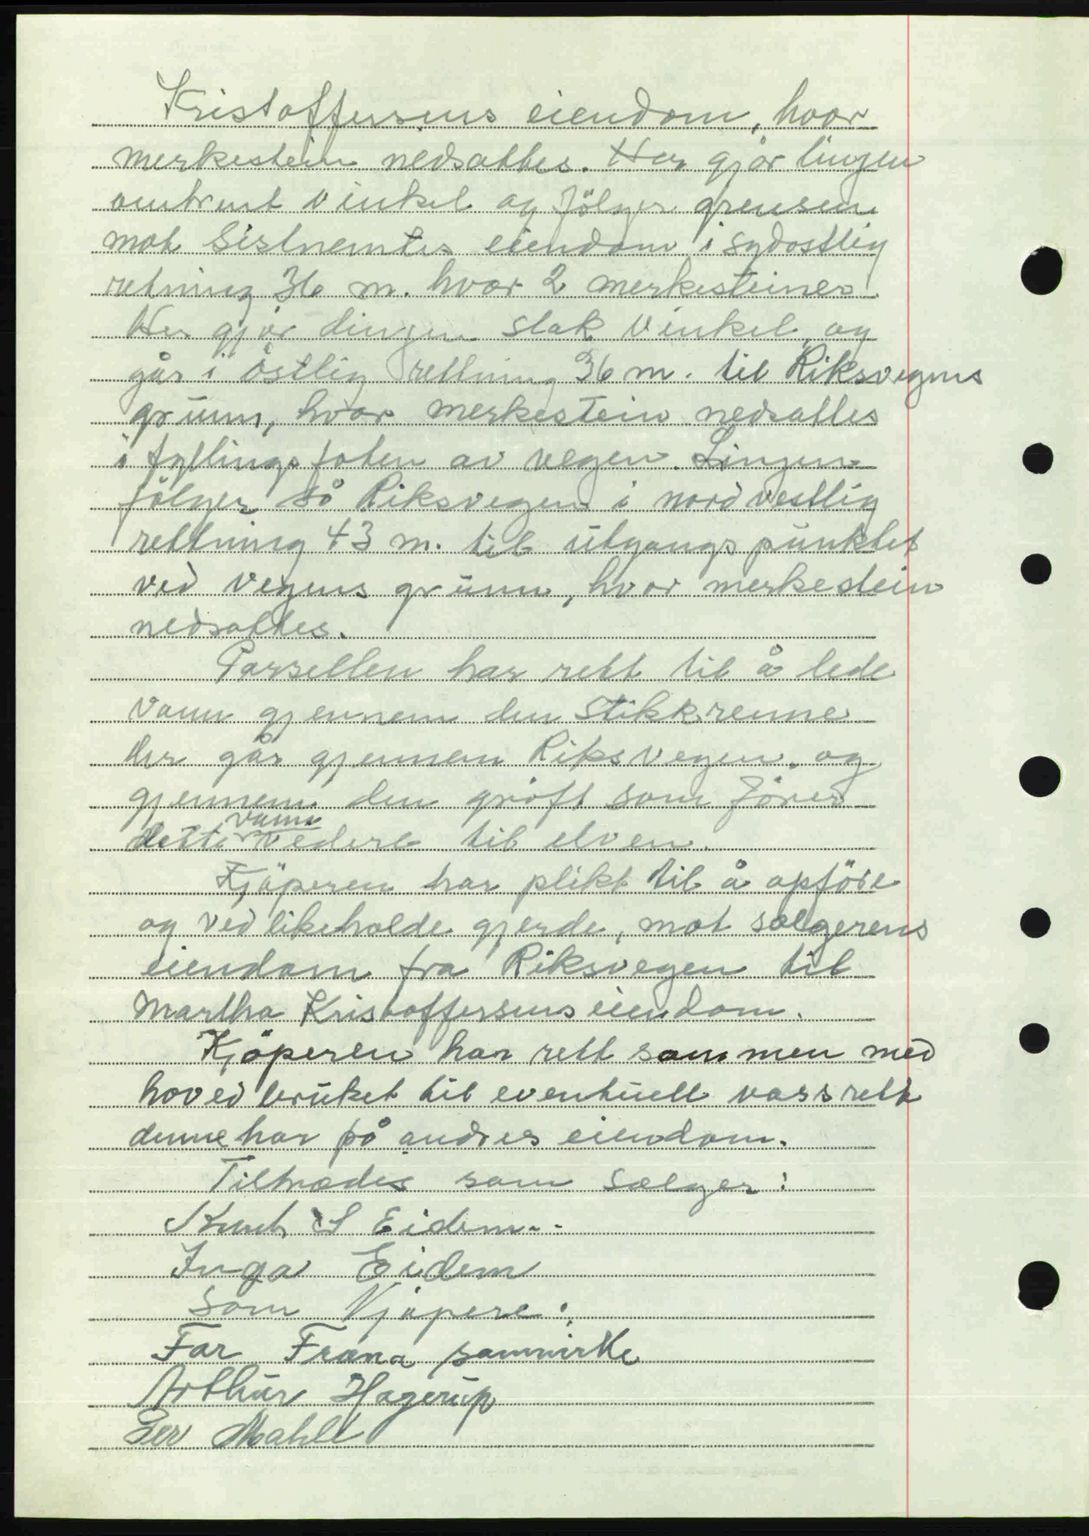 Kristoffersens eiendom, hvor
merkestein nedsattes. Her gjør linjen
omtrent vinkel og følger grensen
mot sistnemtes eiendom i sydostlig
retning 36 m. hvor 2 merkesteiner.
Her gjør linjen slak vinkel og
går i östlig rettning 36 m. til Riksvegens
grunn, hvor merkestein nedsattes
i fyllingsfoten av vegen. Linjen
følger så Riksvegen i nordvestlig
rettning 43 m. til utgangspunktet
ved vegens grunn, hvor merkestein
nedsattes.
Parsellen har rett til å lede
vann gjennem den stikkrenne
der går gjennem Riksvegen, og
gjennem den grøft som fører
dette vann vedere til elven.
Kjöperen har plikt til å opföre
og vedlikeholde gjerde, mot sælgerens
eiendom fra Riksvegen til
Martha Kristoffersens eiendom.
Kjöperen har rett sammen med
hovedbruket til eventuell vassrett
denne har på andres eiendom.
Tiltrædes som sælger:
Knut S Eidem..
Inga Eidem
Som Kjøpere:
For Fræna samvirke
Arthur Hagerup
Per Mahle